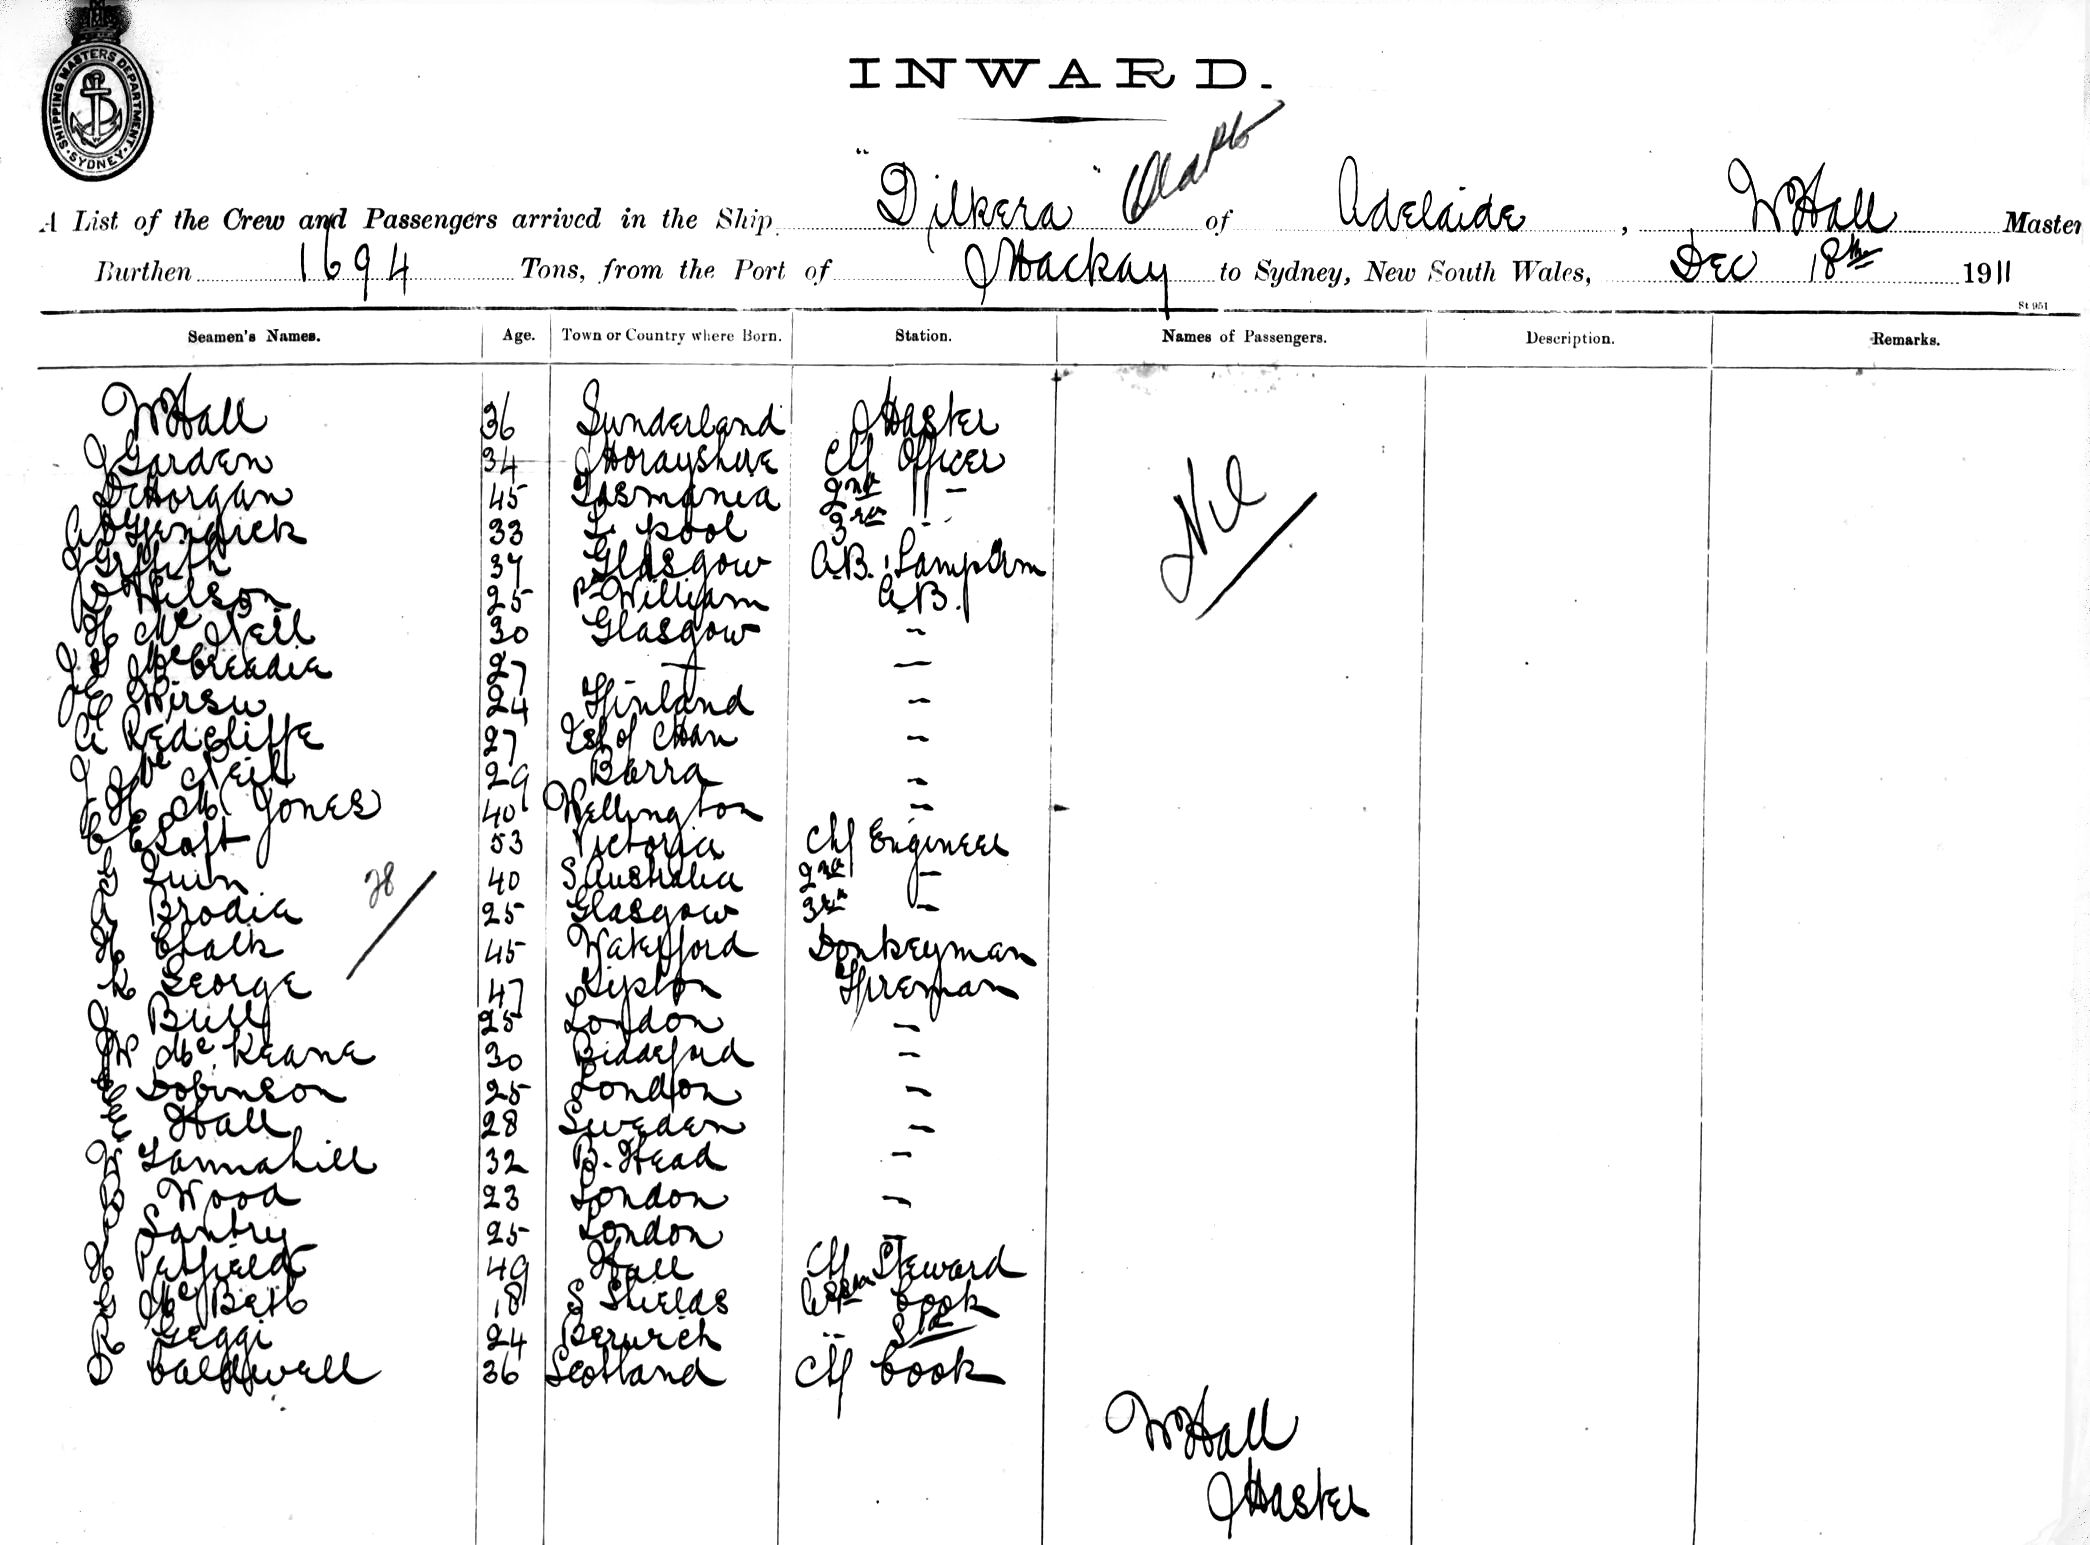 SHIPPING MASTERS DEPARTMENT
SYDNEY
INWARD.
A List of the Crew and Passengers arrived in the Ship "Dilkera" of Adelaide, W Hall Master
Burthen 1694 Tons, from the Port of Mackay to Sydney, New South Wales, Dec 18th 1911
St 951
Seamen's Names. Age. Town or Country where Born. Station. Names of Passengers. Description. Remarks.
W Hall 36 Sunderland Master
J Garden 34 Morayshire Ch Officer
D Morgan 45 Tasmania 2nd " -
33 L. pool 3rd -
J Griffith 37 Glasgow A.B. Lamptrim
Wilson 25 Pt William A.B.
H Mc Neil 30 Glasgow -
J S McCreadie 27 - -
J E Wirsu 24 Finland -
A Redcliffe 27 Isl of Man -
J Mc Neil 29 Barra -
J H M Jones 40 Wellington -
C E Saft 53 Victoria Ch Engineer
G Quin 40 S Australia 2nd -
A Brodie 25 Glasgow 3rd -
H Chalk 45 Waterford Donkeyman
K George 47 Tipton Fireman
J Bull 25 London -
J W Mc Keane 30 Biddeford -
C Dobinson 25 London -
E Hall 28 Sweden -
W Tannahill 32 B. Head -
B Wood 23 London -
P Santry 25 London -
H Petfield 49 Hull Ch Steward
G Mc Beth 18 S Shields Asst Cook
R Geggi 24 Berwick " Std
D Caldwell 36 Scotland Ch Cook
28
Nil
W Hall
Master